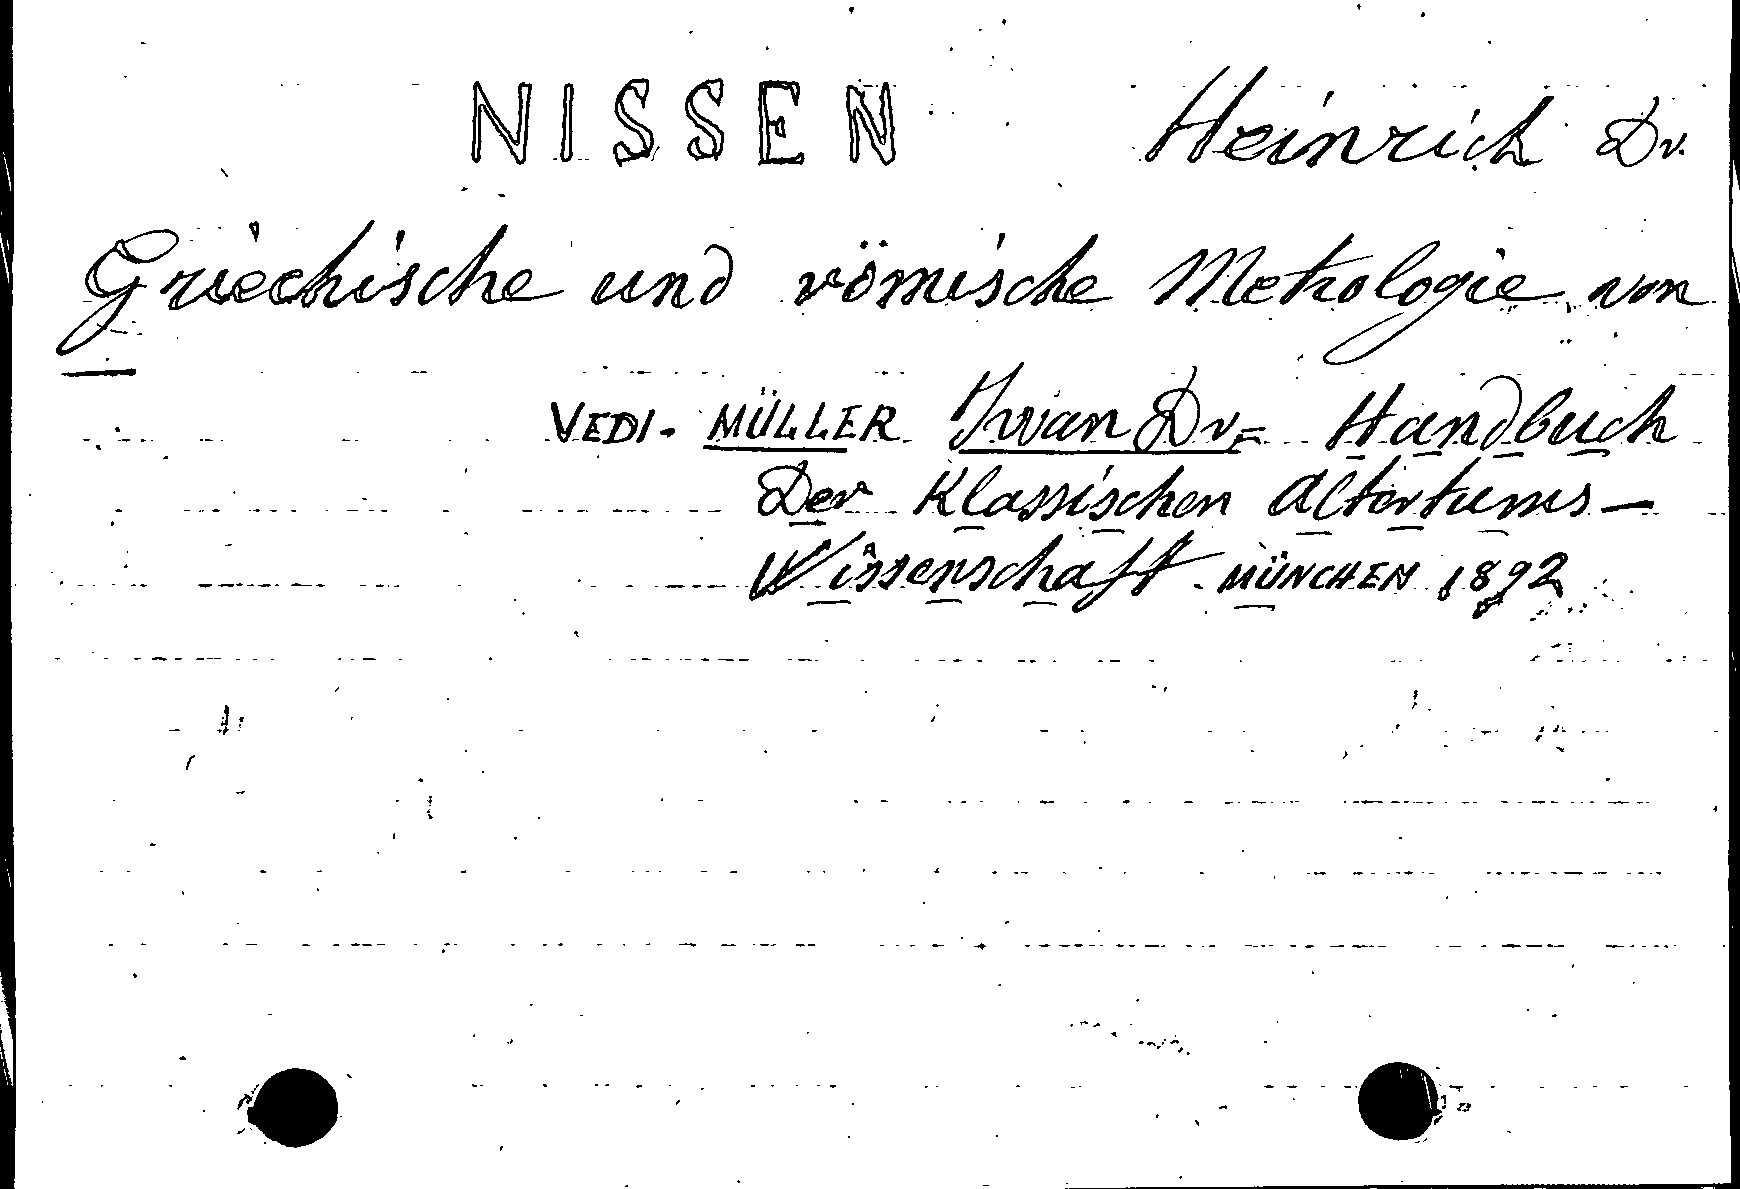 NISSEN Heinrich Dr.
Griechische und römische Metrologie von
VEDI. MÜLLER Iwan Dr. Handbuch
Der Klassischen Altertums-
Wissenschaft. MÜNCHEN 1892